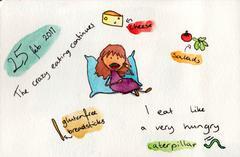 25
feb 2017
The crazy eating continues
cheese
salads
gluten free
breadsticks
I eat like
a very hungry
caterpillar